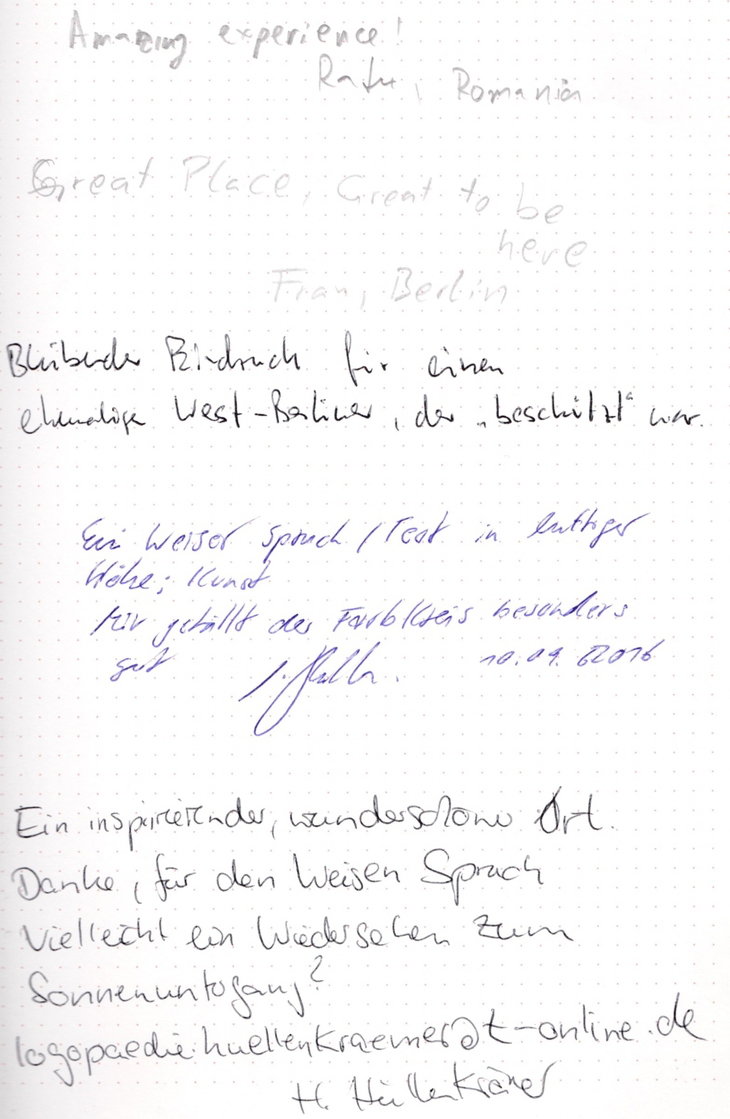 Amazing experience!
Romania
Great Place, Great to be
here
Fran, Berlin
Bleibender Eindruck für einen
ehemalige West-Berliner, der „beschützt“ war.
Ein Weiser Spruch / Text in luftiger
Höhe; Kunst
Mir gefällt der Farbkreis besonders
gut 10.09.2016
Ein inspirierender, wunderschöner Ort.
Danke, für den Weisen Spruch
Vielleicht ein Wiedersehen zum
Sonnenuntergang?
logopaedie.huellenkraemer@t-online.de
H. Hüllenkrämer